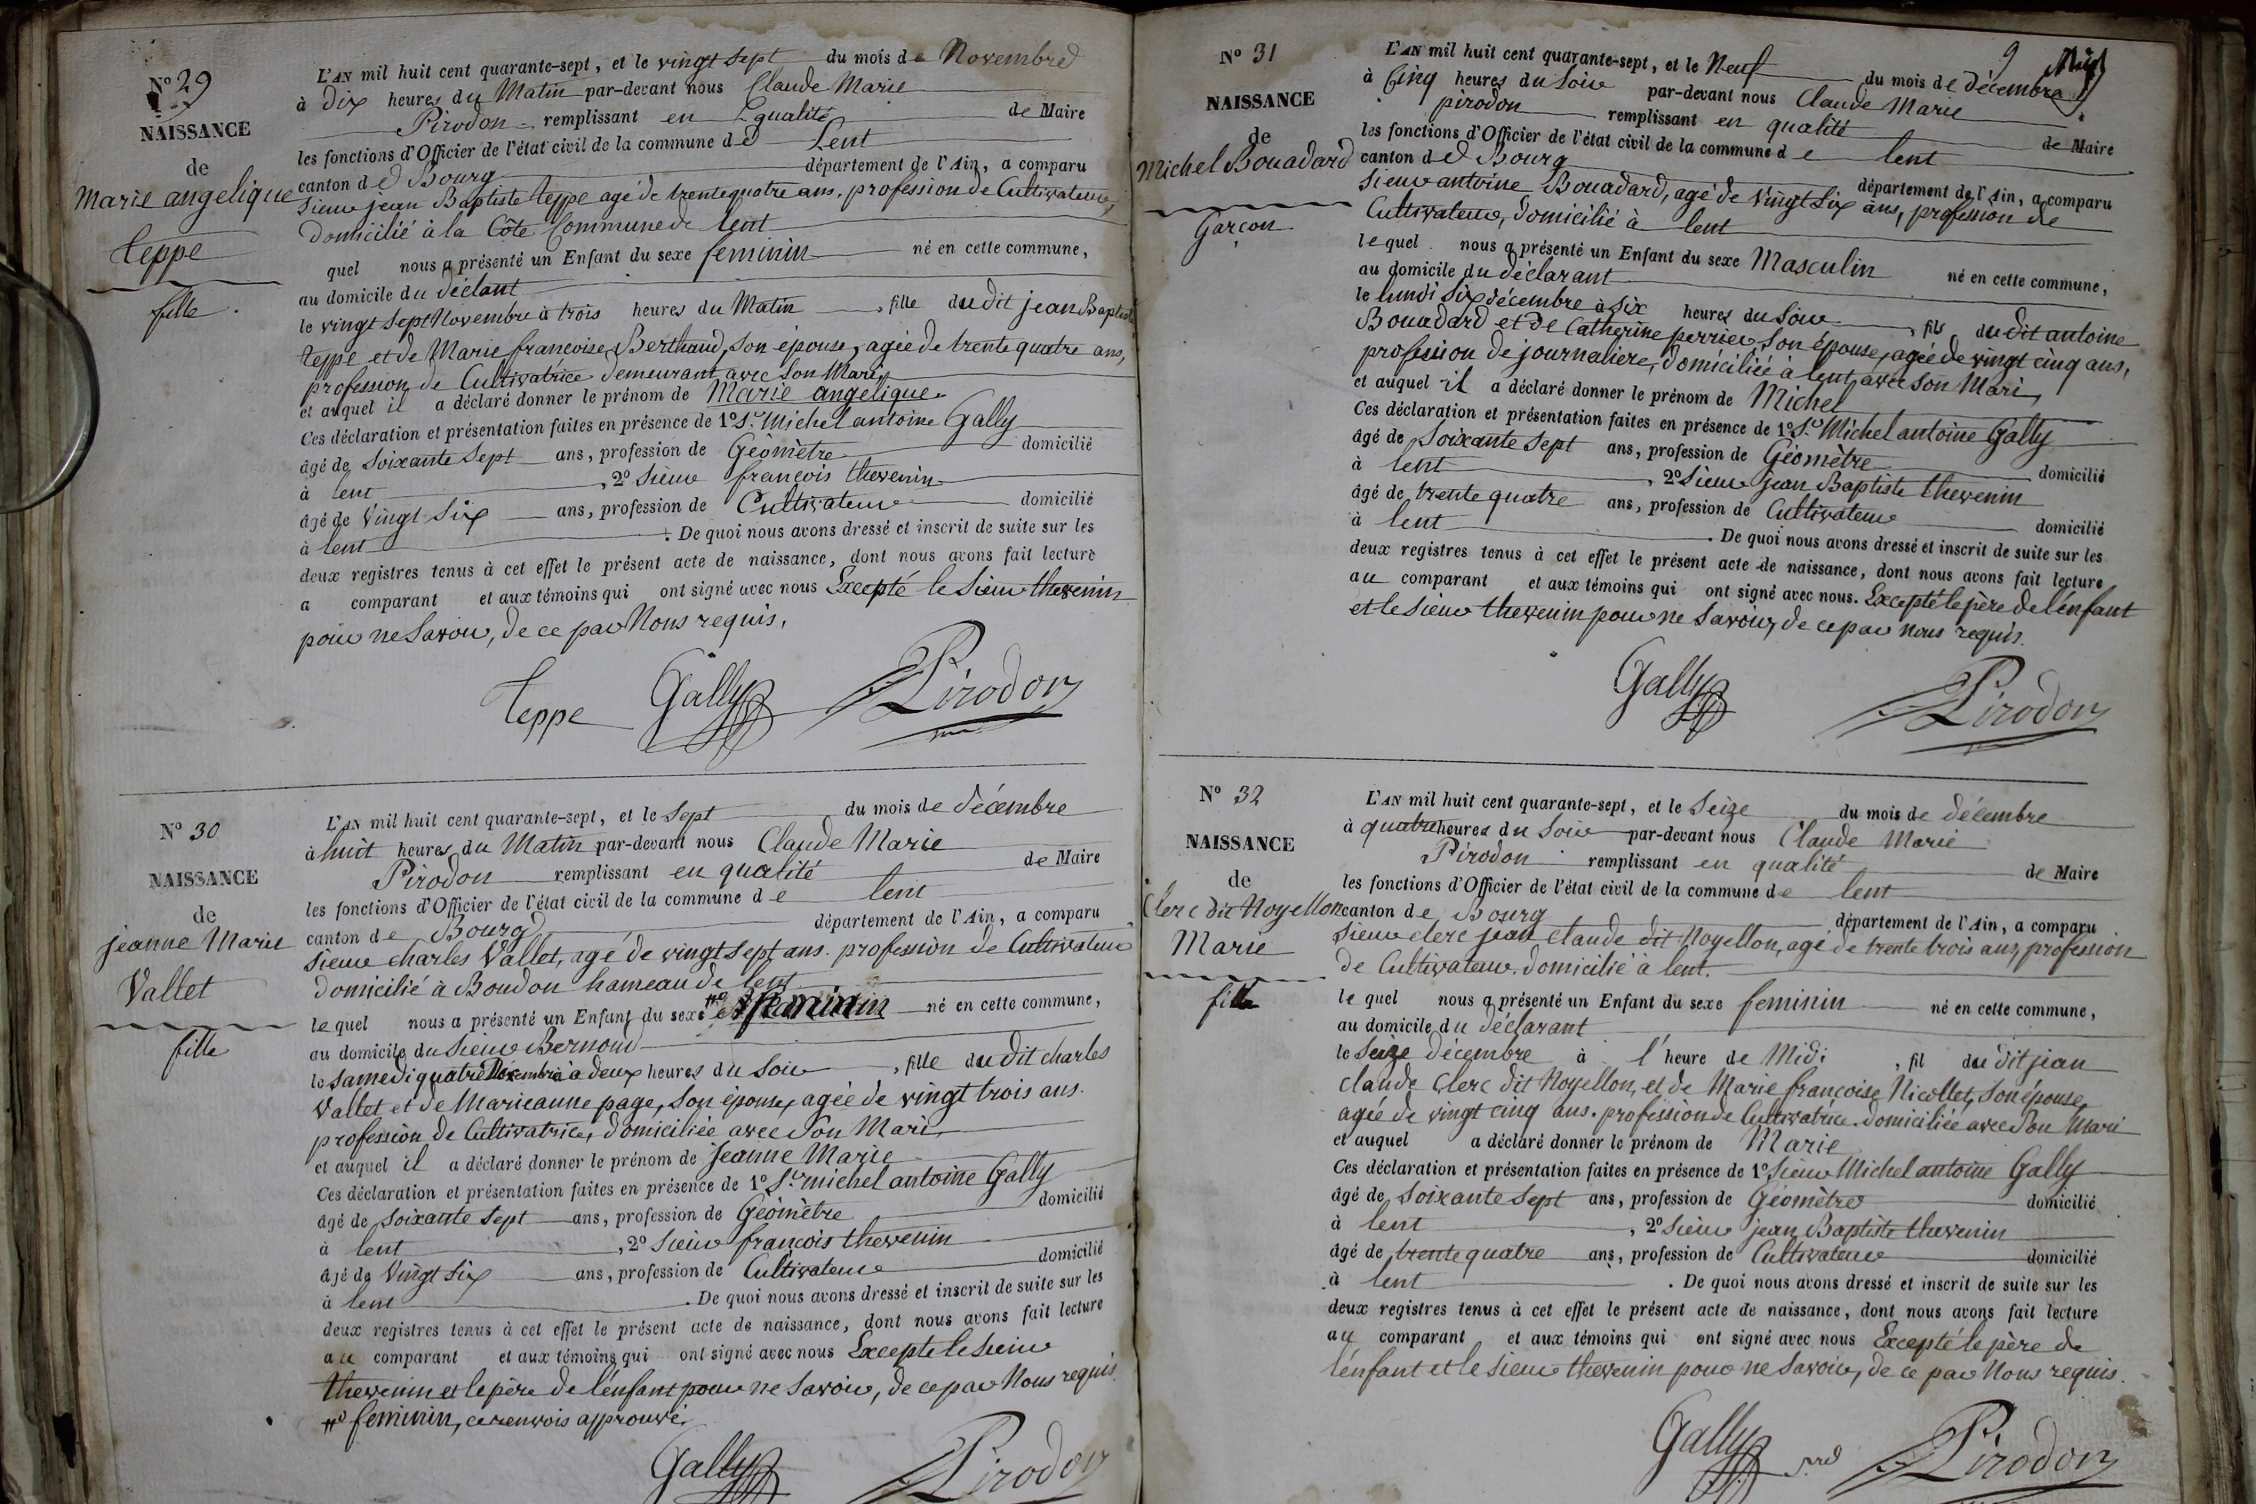 N° 29
NAISSANCE
de
Marie angelique
teppe
fille
L'AN mil huit cent quarante-sept, et le vingt sept du mois de Novembre
à Dix heures du Matin par-devant nous Claude Marie
Pirodon remplissant en qualité de Maire
les fonctions d'Officier de l'état civil de la commune de Lent
canton de Bourg département de l'Ain, a comparu
Sieur jean Baptiste teppe agé de trente quatre ans, profession de Cultivateur,
Domicilié à la Côte Commune de lent
quel nous a présenté un Enfant du sexe feminin né en cette commune,
au domicile du déclant
le vingt sept Novembre à trois heures du Matin, fille du dit jean Baptiste
teppe et de Marie francoise Berthaud, son épouse, agée de trente quatre ans,
profession de Cultivatrice demeurant avec son Mari
et auquel il a déclaré donner le prénom de Marie angelique
Ces déclaration et présentation faites en présence de 1° Sr Michel antoine Gally
âgé de soixante sept ans, profession de Géomètre domicilié
à lent, 2° Sieur francois thevenin
âgé de vingt six ans, profession de Cultivateur domicilié
à lent. De quoi nous avons dressé et inscrit de suite sur les
deux registres tenus à cet effet le présent acte de naissance, dont nous avons fait lecture
a comparant et aux témoins qui ont signé avec nous Excepté le Sieur thevenin
pour ne Savoir, de ce par Nous requis.
teppe Gally Pirodon
N° 30
NAISSANCE
de
jeanne Marie
Vallet
fille
L'AN mil huit cent quarante-sept, et le Sept du mois de décembre
à huit heures du Matin par-devant nous Claude Marie
Pirodon remplissant en qualité de Maire
les fonctions d'Officier de l'état civil de la commune de lent
canton de Bourg département de l'Ain, a comparu
Sieur charles Vallet, agé de vingt sept ans. profession de Cultivateur
domicilié à Boudon hameau de lent
lequel nous a présenté un Enfant du sexe feminin né en cette commune,
au domicile du Sieur Bernoud
le samedi quatre Décembre à deux heures du Soir, fille du dit charles
Vallet et de Marieanne page, son épouse, agée de vingt trois ans.
profession de Cultivatrice, domiciliée avec Son Mari
et auquel il a déclaré donner le prénom de Jeanne Marie
Ces déclaration et présentation faites en présence de 1° Sr michel antoine Gally
âgé de soixante sept ans, profession de Géomètre domicilié
à lent, 2° Sieur francois thevenin
âgé de vingt six ans, profession de Cultivateur domicilié
à lent. De quoi nous avons dressé et inscrit de suite sur les
deux registres tenus à cet effet le présent acte de naissance, dont nous avons fait lecture
au comparant et aux témoins qui ont signé avec nous Excepté le Sieur
thevenin et le père de l'énfant pour ne Savoir, de ce par Nous requis.
feminin, ce renvois approuvé.
Gally Pirodon
9
N° 31
NAISSANCE
de
Michel Bouadard
Garçon
L'AN mil huit cent quarante-sept, et le Neuf du mois de décembre
à Cinq heures du Soir par-devant nous Claude Marie
pirodon remplissant en qualité de Maire
les fonctions d'Officier de l'état civil de la commune de lent
canton de Bourg département de l'Ain, a comparu
Sieur antoine Bouadard, agé de vingt six ans, profession de
Cultivateur, domicilié à lent
lequel nous a présenté un Enfant du sexe Masculin né en cette commune,
au domicile du déclarant
le lundi six décembre à six heures du Soir, fils du dit antoine
Bouadard et de Catherine perrier son épouse, agée de vingt cinq ans,
profession de journalière, domiciliée à lent avec son Mari
et auquel il a déclaré donner le prénom de Michel
Ces déclaration et présentation faites en présence de 1° Sr Michel antoine Gally
âgé de soixante sept ans, profession de Géomètre domicilié
à lent, 2° Sieur jean Baptiste thevenin
âgé de trente quatre ans, profession de Cultivateur domicilié
à lent. De quoi nous avons dressé et inscrit de suite sur les
deux registres tenus à cet effet le présent acte de naissance, dont nous avons fait lecture
au comparant et aux témoins qui ont signé avec nous. Excepté le père de l'énfant
et le Sieur thevenin pour ne Savoir, de ce par nous requis.
Gally Pirodon
N° 32
NAISSANCE
de
Clerc dit Noyellon
Marie
fille
L'AN mil huit cent quarante-sept, et le Seize du mois de décembre
à quatre heures du Soir par-devant nous Claude Marie
Pirodon remplissant en qualité de Maire
les fonctions d'Officier de l'état civil de la commune de lent
canton de Bourg département de l'Ain, a comparu
Sieur clerc jean claude dit Noyellon, agé de trente trois ans, profession
de Cultivateur. domicilié à lent.
lequel nous a présenté un Enfant du sexe feminin né en cette commune,
au domicile du déclarant
le Seize décembre à l'heure de Midi, fil du dit jean
claude Clerc dit Noyellon, et de Marie francoise Nicollet, son épouse,
agée de vingt cinq ans. profession de Cultivatrice. domiciliée avec Son Mari
et auquel a déclaré donner le prénom de Marie
Ces déclaration et présentation faites en présence de 1° Sieur Michel antoine Gally
âgé de soixante sept ans, profession de Géomètre domicilié
à lent, 2° Sieur jean Baptiste thevenin
âgé de trente quatre ans, profession de Cultivateur domicilié
à lent. De quoi nous avons dressé et inscrit de suite sur les
deux registres tenus à cet effet le présent acte de naissance, dont nous avons fait lecture
au comparant et aux témoins qui ont signé avec nous Excepté le père de
l'énfant et le Sieur thevenin pour ne Savoir, de ce par Nous requis.
Gally Pirodon